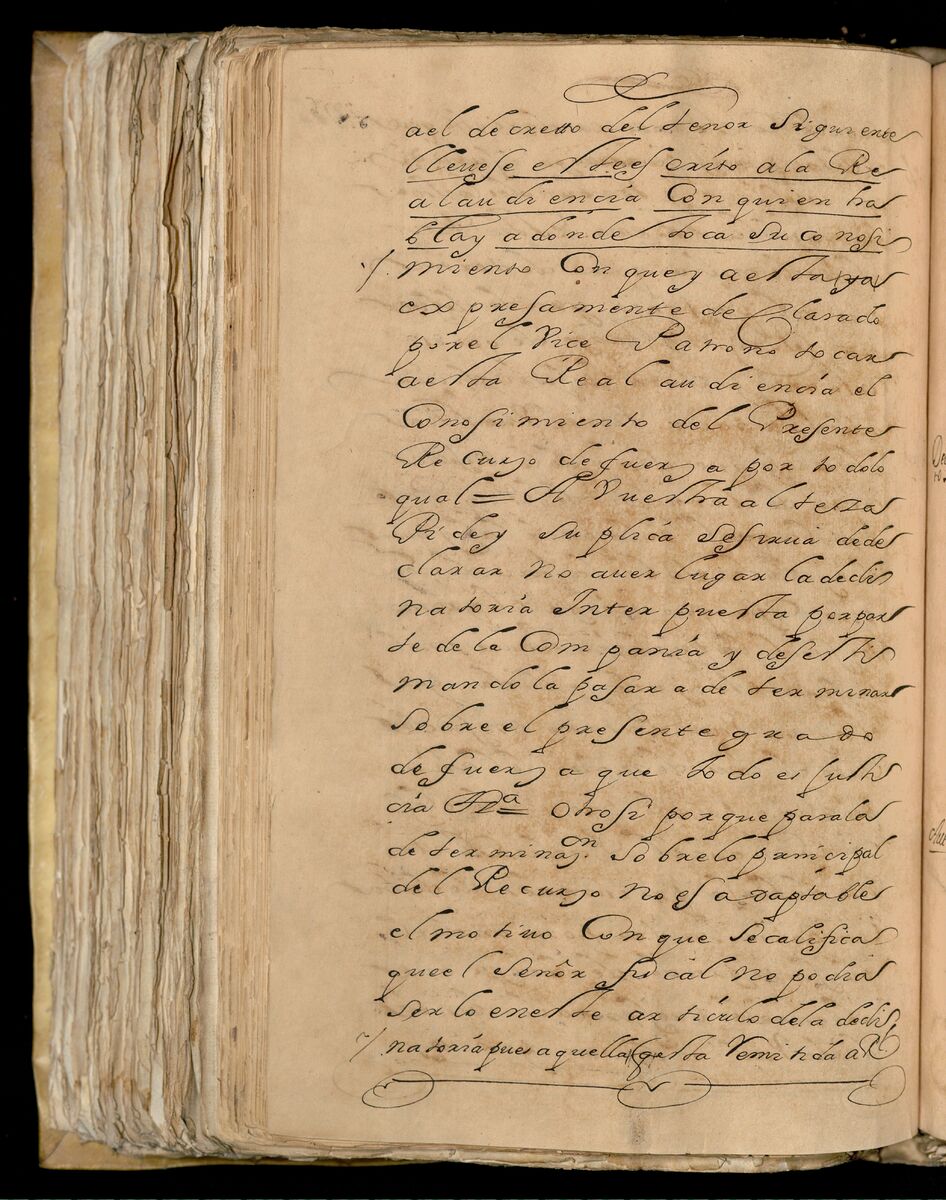 ael decretto del tenor siguiente
lleuese esteescrito a la Re
alaudiencia Con quien ha
blay adonde toca su conosi
miento Con que y aesta
expresamente declarado
porel Vice Patrono tocar
aesta Real audiencia el
Conosimiento del Presente
Recurso defuerza por todolo
qual = A Vuestra alteza
Pide y suplica sesirua dede
clarar no auer lugar ladecli
natoria Inter puesta porpar
te de la Compania y desesti
mandola pasar a determinar
sobreel presente grado
defuerza que todo es justi
cia Otrosi porque parala
determinaon sobrelo principal
del Recurso no es adaptable
el motiuo Con que secalifica
queel señor fiscal no podia
serlo eneste articulo dela decli
natoria pues aquella esta Remitida a